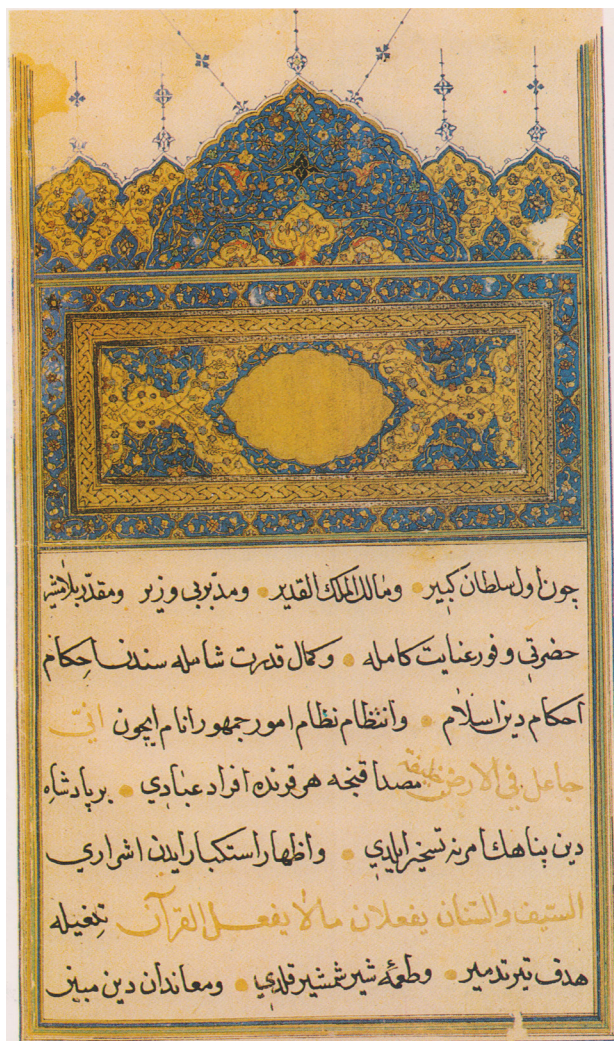 چون اول سلطان كبير ومالك الملك القدير ومدبر بی وزیر ومقدر بلا مشیر
حضرتی وفور عنایت كامله وكمال قدرت شامله سندن احكام
احكام دین اسلام وانتظام نظام امور جمهور انام ایچون انّی
جاعل فی الارض خلیفة مصداقنجه هر قرنده افراد عبادی بر پادشاه
دین پناهك امرنه تسخیر ایلدی واظهار استكبار ایدن اشراری
السیف والسنان یفعلان مالا یفعل القرآن تیغیله
هدف تیر تدمیر وطعمهٔ شیر شمشیر قلدی ومعاندان دین مبین